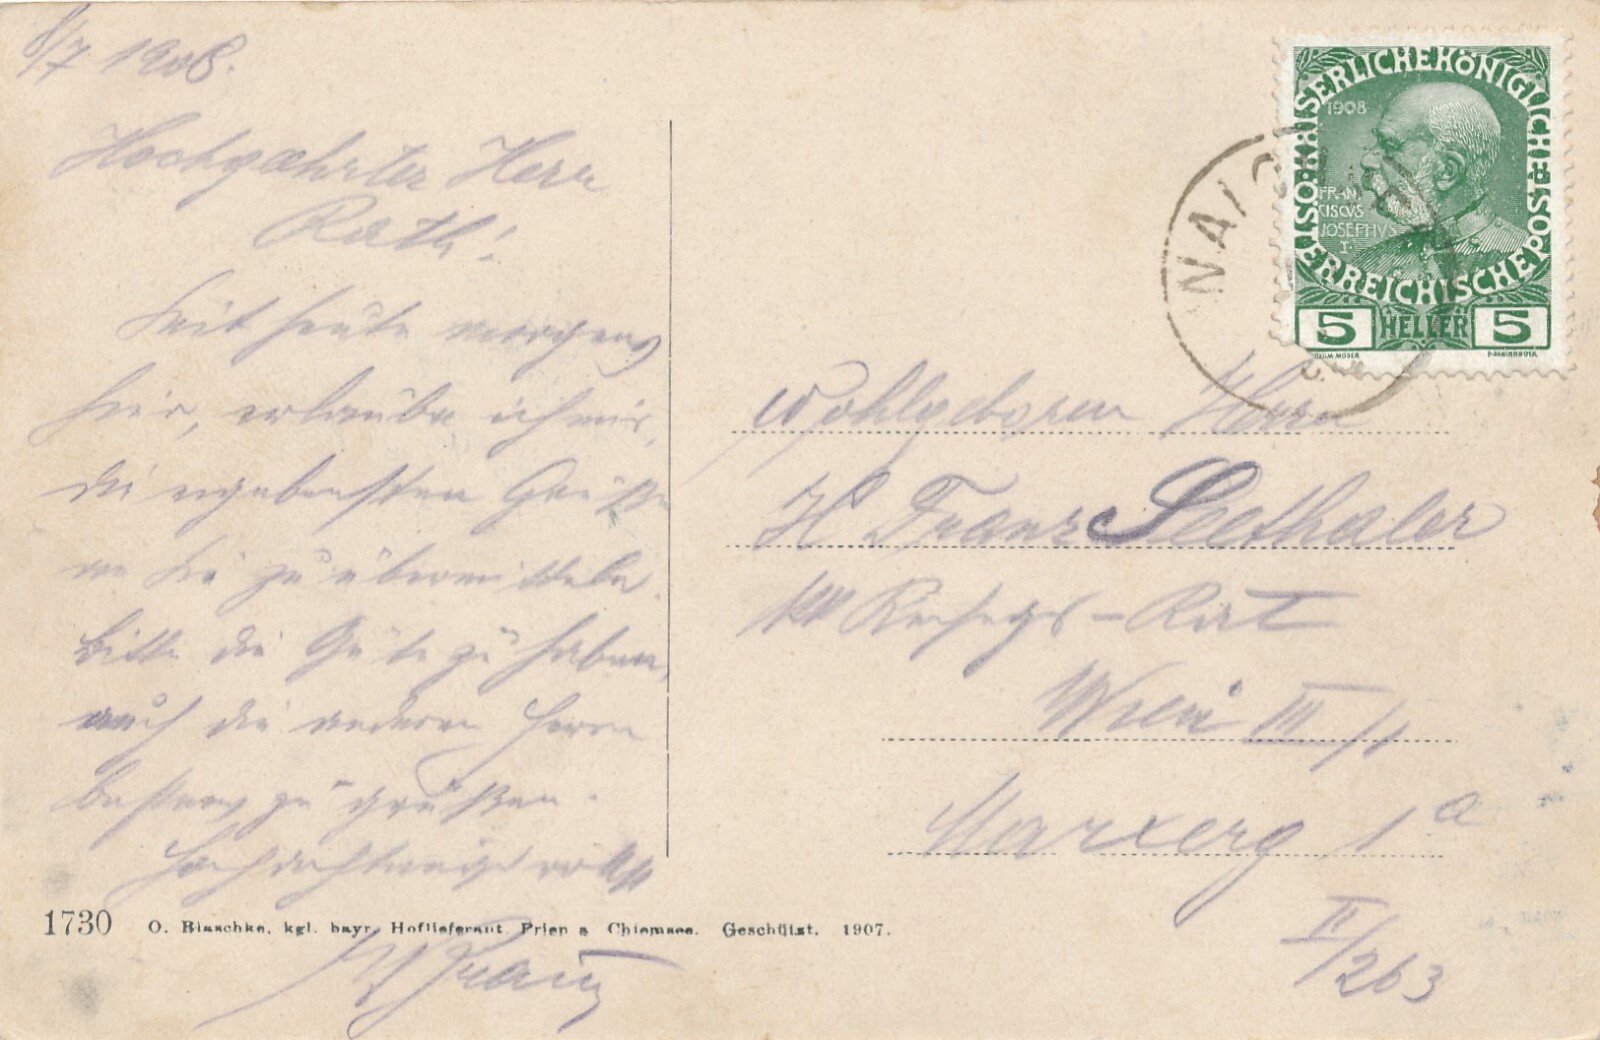 8/7 1908.
Hochgeehrter Herr
Rath!
Seit heute morgens
hier, erlaube ich mir,
die ergebensten Grüße
an Sie zu übermitteln.
Bitte die Güte zu haben,
auch die anderen Herrn
bestens zu grüßen.
Hochachtungsvollst
1730 O. Blaschke, kgl. bayr. Hoflieferant Prien a Chiemsee. Geschützt. 1907.
KAISERLICHE KÖNIGLICHE ÖSTERREICHISCHE POST
1908
FRAN
CISCVS
JOSEPHVS
I.
5 HELLER 5
Wohlgeboren Herrn
H Franz Seethaler
KK Rechngs-Rat
Wien III/1
Marxerg 1a
II/263